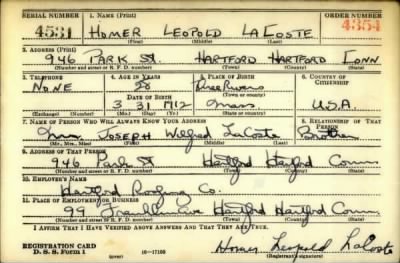 SERIAL NUMBER 1. NAME (Print) ORDER NUMBER
4531 HOMER LEOPOLD LACOSTE 4354
(First) (Middle) (Last)
2. ADDRESS (Print)
946 PARK St. HARTFORD HARTFORD CONN
(Number and street or R. F. D. number) (Town) (County) (State)
3. TELEPHONE 4. AGE IN YEARS 5. PLACE OF BIRTH 6. COUNTRY OF CITIZENSHIP
NONE 28 Three Rivers
DATE OF BIRTH (Town or county)
3 31 1912 Mass U.S.A.
(Exchange) (Number) (Mo.) (Day) (Yr.) (State or country)
7. NAME OF PERSON WHO WILL ALWAYS KNOW YOUR ADDRESS 8. RELATIONSHIP OF THAT PERSON
JOSEPH Wilfred LaCoste Brother
(Mr., Mrs., Miss) (First) (Middle) (Last)
9. ADDRESS OF THAT PERSON
946 Park St Hartford Hartford Conn
(Number and street or R. F. D. number) (Town) (County) (State)
10. EMPLOYER'S NAME
Hartford Roofing Co.
11. PLACE OF EMPLOYMENT OR BUSINESS
99 Franklin Ave Hartford Hartford Conn
(Number and street or R. F. D. number) (Town) (County) (State)
I AFFIRM THAT I HAVE VERIFIED ABOVE ANSWERS AND THAT THEY ARE TRUE.
REGISTRATION CARD
D. S. S. Form 1 (over) 16—17105 Homer Leopold LaCoste
(Registrant's signature)